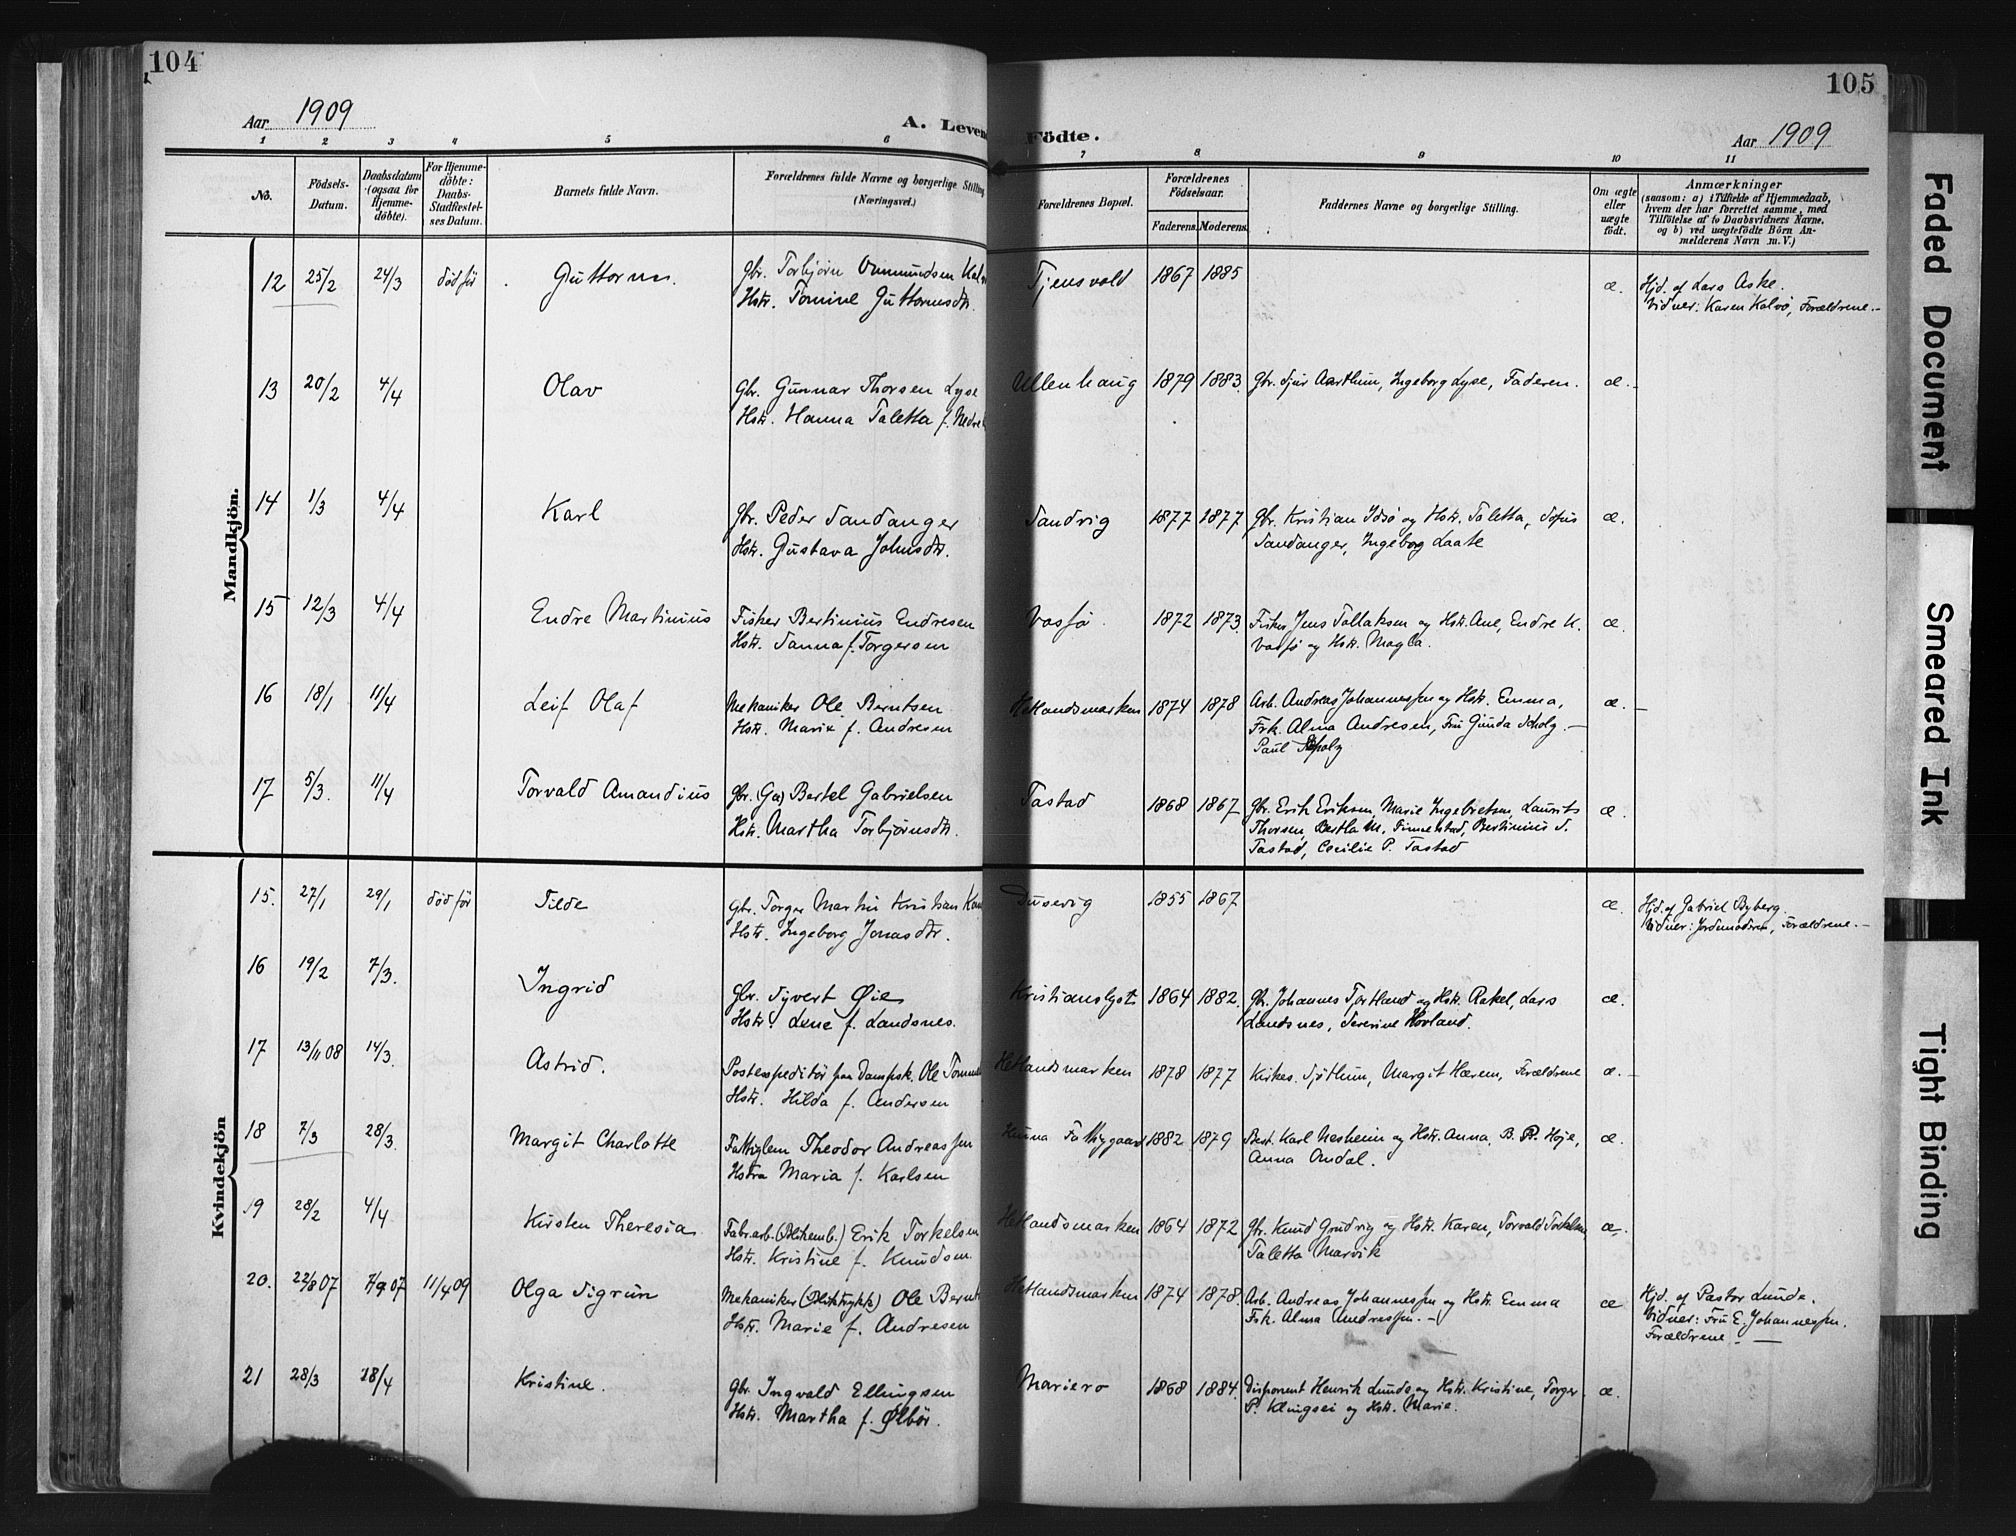 104
105
Aar 1909
A. Levende Födte.
Aar 1909
1 2 3 4 5 6 7 8 9 10 11
No.
Födsels-Datum.
Daabsdatum (ogsaa for Hjemme-döbte).
For Hjemme-döbte: Daabs-Stadfæstel-ses Datum.
Barnets fulde Navn.
Forældrenes fulde Navne og borgerlige Stilling (Næringsvei.)
Forældrenes Bopæl.
Forældrenes Födselsaar.
Faderens. Moderens.
Faddernes Navne og borgerlige Stilling.
Om ægte eller uægte födt.
Anmærkninger
(saasom: a) i Tilfælde af Hjemmedaab,
hvem der har forrettet samme, med
Tilföielse af to Daabsvidners Navne,
og b) ved uægtefödte Börn An-
melderens Navn m. V.)
Mandkjön.
12 25/2 24/3 död før Guttorm. Gbr. Torbjørn Ommundsen Tjensvold 1867 1885 æ. Hjd. af Lars Aske.
Hstr. Tomine Guttormsdtr. Vidner: Karen Kalvø, Forældrene.-
13 20/2 4/4 Olav Gbr. Gunnar Thorsen Lyse Ullenhaug 1879 1883. Gbr. Sjur Aarthun, Ingeborg Lyse, Faderen. æ.-
Hstr. Hanna Taletta f. Nedre
14 1/3 4/4 Karl Gbr. Peder Sandanger Sandvig 1877 1877 Gbr. Kristian Idsø og Hstr. Taletta, Sofus æ.
Hstr. Gustava Johnsdtr. Sandanger, Ingeborg Laate
15 12/3 4/4 Endre Martinius Fisker Bertinius Endresen Vassø. 1872 1873. Fisker Jens Tollaksen og Hstr. Ane, Endre K. æ.
Hstr. Sanna f. Torgersen Vassø og Hstr. Magla.
16 18/1 11/4 Leif Olaf Mekaniker Ole Berntsen Hetlandsmarken 1874 1878 Arb. Andreas Johannessen og Hstr. Emma, æ.-
Hstr. Marie f. Andresen Frk. Alma Andresen, Fru Gunda Scholz.-
Paul Scholz
17 5/3. 11/4 Torvald Amandius Gbr. (Ga) Bertel Gabrielsen Tastad 1868 1867 Gbr. Erik Eriksen, Marie Ingebretsen, Laurits æ.
Hstr. Martha Torbjørnsdtr. Thorsen, Bertla M. Finnestad, Bertinius S.
Tastad, Cecilie P. Tastad
Kvindekjön
15. 27/1 29/1 død før Tilde Gbr. Torger Martin Kristian Dusevig 1855 1867 æ. Hjd. af Gabriel Byberg
Hstr. Ingeborg Jonasdtr. Vidner: Jordemoderen, Forældrene.-
16 19/2 7/3. Ingrid Gbr. Syvert Øie Kristianslyst 1864 1882. Gbr. Johannes Tjortland og Hstr. Rakel, Lars æ.
Hstr. Lene f. Landsnes. Landsnes, Severine Hovland.
17 13/11 08 14/3. Astrid. Postexpeditør paa Dampsk. Ole Hetlandsmarken 1878 1877 Kirkes. Sjøthun, Margit Hærem, Forældrene æ.-
Hstr. Hilda f. Andersen
18 7/3 28/3. Margit Charlotte Fattiglem Theodor Andreassen Hinna Fattiggaard 1882 1879 Best. Karl Nesheim og Hstr. Anna, B. R. Høje, æ.
Hstra Maria f. Karlsen Anna Omdal.
19 28/2 4/4 Kirsten Theresia Fabr.arb. (Blikemb.) Erik Torkelsen Hetlandsmarken 1864 1872 Gbr. Knud Gondvig og Hstr. Karen, Torvald Torkelsen æ.
Hstr. Kristine f. Knudsen Taletta Marvik
20. 22/8 07 7/9 07 11/4 09 Olga Sigrun Mekaniker (Bliktrykk) Ole Bernt Hetlandsmarken 1874 1878. Arb. Andreas Johannessen og Hstr. Emma æ Hjd. af Pastor Lunde.
Hstr. Marie f. Andresen Frk. Alma Andressen.- Vidner: Fru E. Johannessen.
Forældrene -
21 28/3 18/4 Kristine. Gbr. Ingvald Ellingsen Mariero 1868 1884. Disponent Henrik Lunde og Hstr. Kristine, Torger æ.
Hstr. Martha f. Ølbör. P. Klingsei og Hstr. Marie.
Faded Document
Smeared Ink
Tight Binding